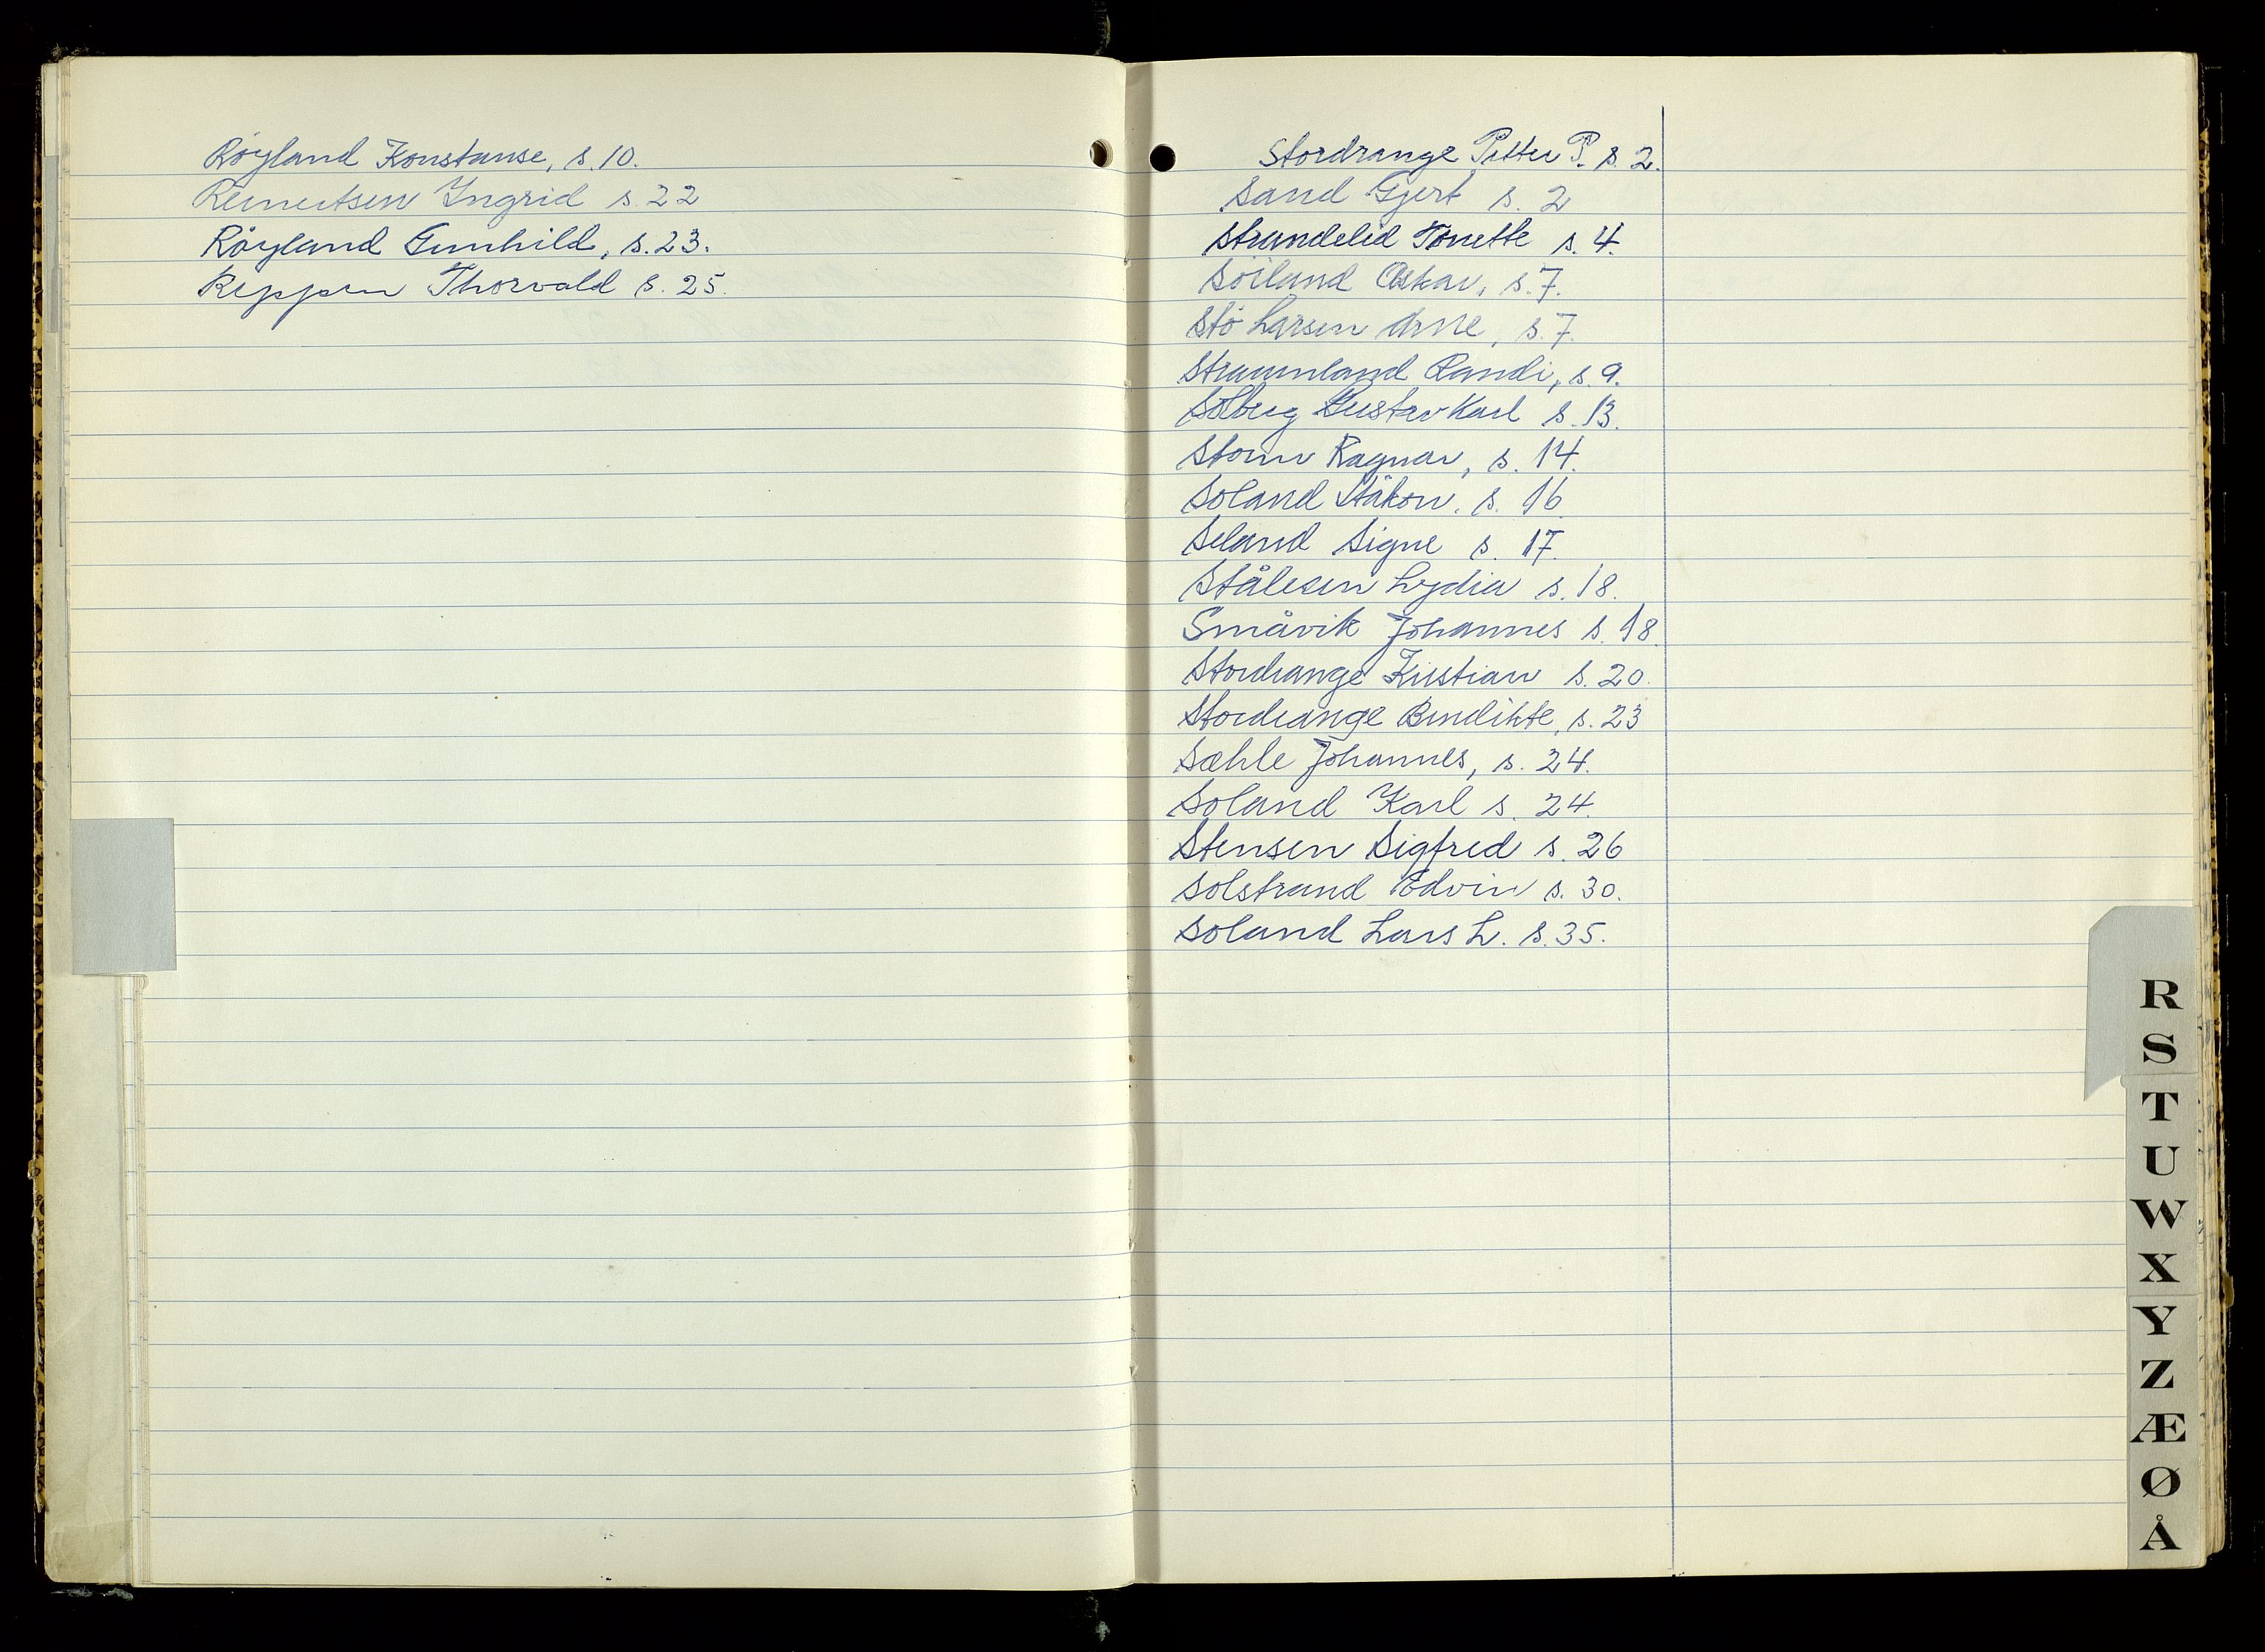 Röyland Konstanse, s. 10.
Reinertsen Ingrid s. 22
Röyland Gunhild, s. 23.
Reppen Thorvald s. 25.
Stordrange Petter P. s. 2.
Sand Gjert s. 2
Strandelid Tonette s. 4.
Söiland Oskar, s. 7.
Stö Larsen Arne, s. 7.
Straumland Randi, s. 9.
Solberg Gustav Karl s. 13.
Storm Ragnar, s. 14.
Soland Håkon, s. 16.
Seland Signe s. 17.
Stålesen Lydia s. 18.
Småvik Johannes s. 18.
Stordrange Kristian s. 20.
Stordrange Bendikte, s. 23
Sæhle Johannes, s. 24.
Soland Karl s. 24.
Stensen Sigfred s. 26
Solstrand Edvin s. 30.
Soland Lars L. s. 35.
R
S
T
U
W
X
Y
Z
Æ
Ø
Å